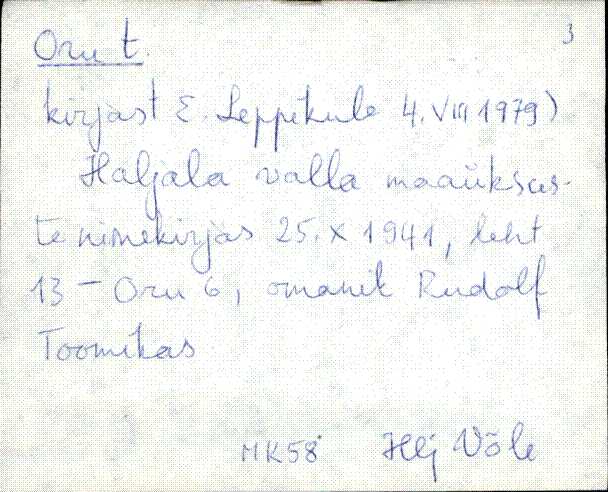 Oru t. 3
kirjast E. Leppikule 4. VIII 1979)
Haljala valla maaüksus-
te nimekirjas 25. X 1941, leht
13 - Oru 6, omanik Rudolf
Toomikas
MK58 Hlj Võle